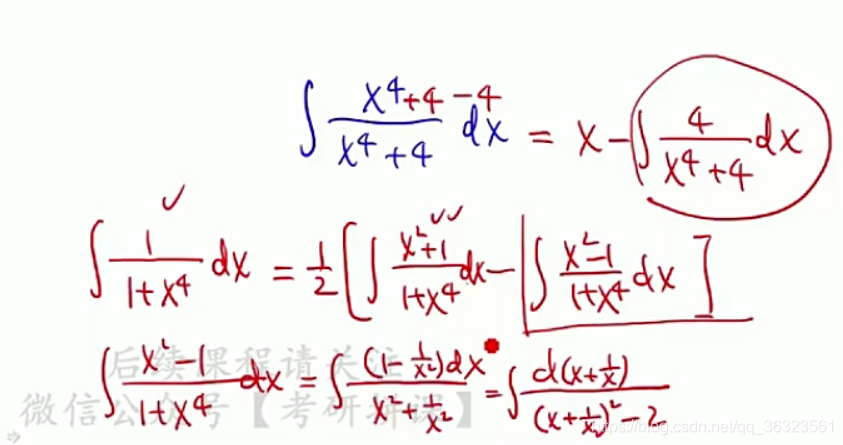 ∫ (x⁴+4−4)/(x⁴+4) dx = x − ∫ 4/(x⁴+4) dx
∫ 1/(1+x⁴) dx = 1/2 [ ∫ (x²+1)/(1+x⁴) dx − ∫ (x²−1)/(1+x⁴) dx ]
∫ (x²−1)/(1+x⁴) dx = ∫ (1−1/x²)dx/(x²+1/x²) = ∫ d(x+1/x)/((x+1/x)²−2)
后续课程请关注
微信公众号【考研
https://blog.csdn.net/qq_36323561